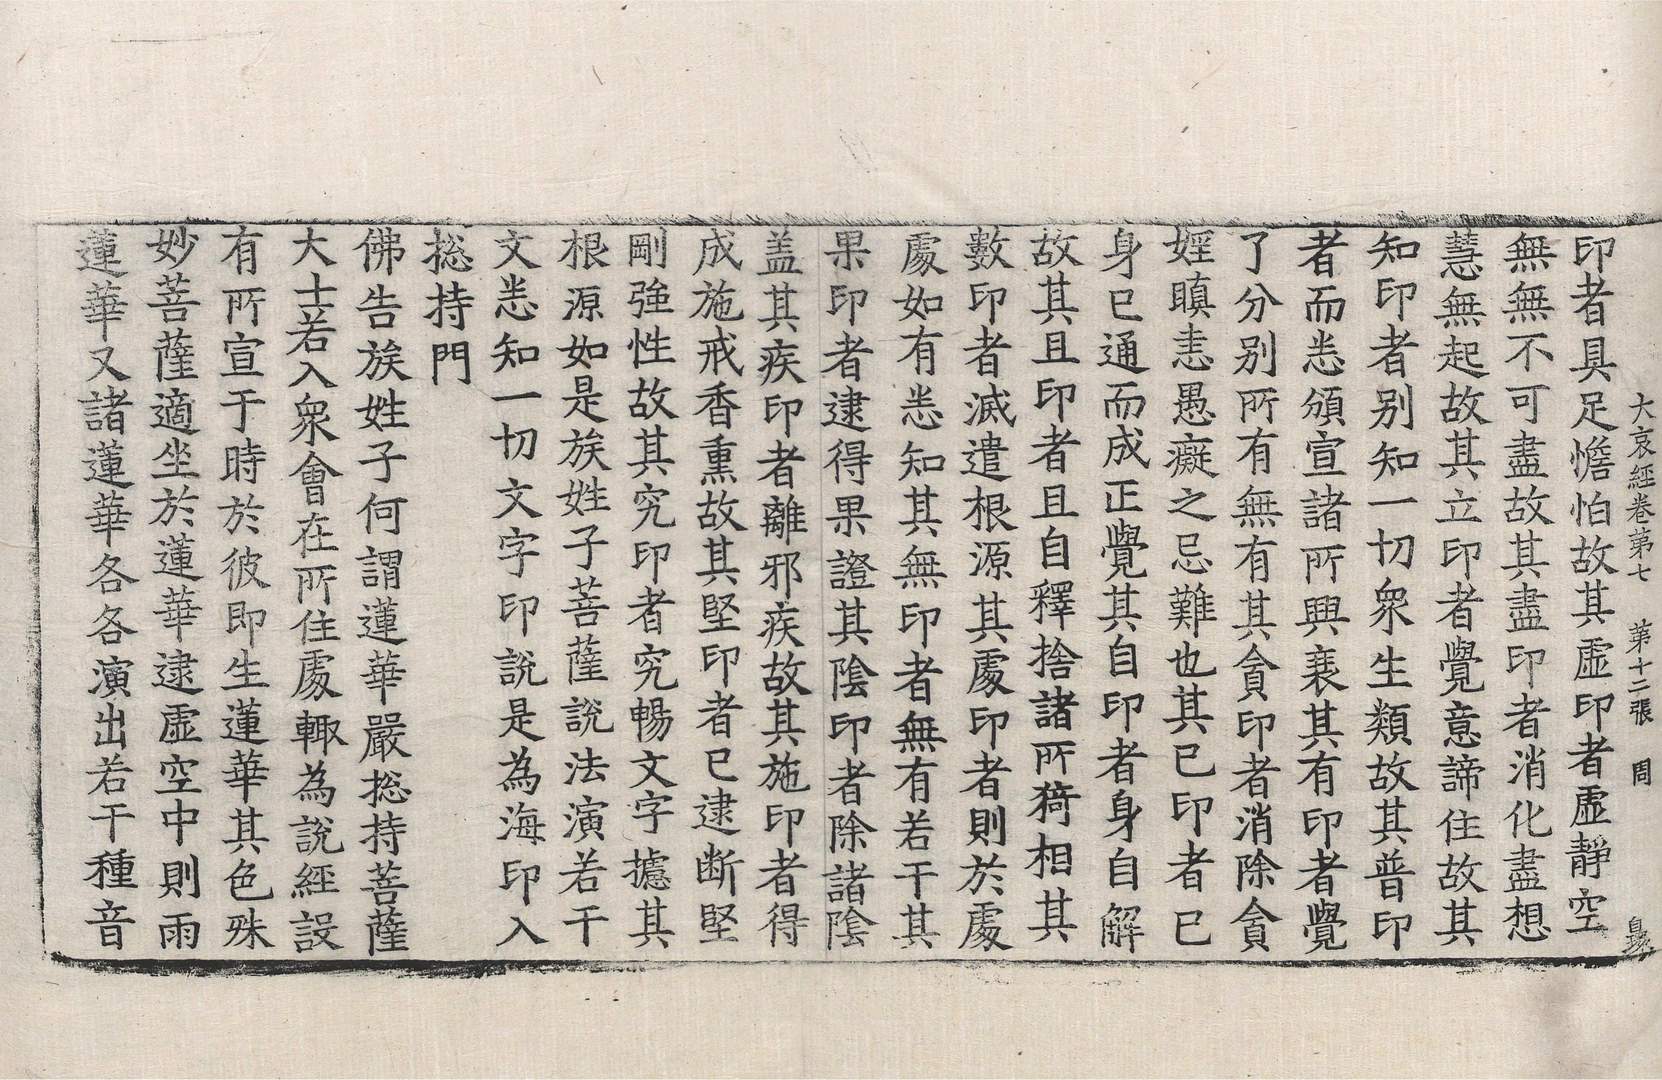 大哀經卷第七 第十二張 周
印者具足憺怕故其虛印者虛靜空
無無不可盡故其盡印者消化盡想
慧無起故其立印者覺意諦住故其
知印者別知一切衆生類故其普印
者而悉頒宣諸所興衰其有印者覺
了分別所有無有其貪印者消除貪
婬瞋恚愚癡之忌難也其已印者已
身已通而成正覺其自印者身自解
故其且印者且自釋捨諸所猗相其
數印者滅遣根源其處印者則於處
處如有悉知其無印者無有若干其
果印者逮得果證其陰印者除諸陰
盖其疾印者離邪疾故其施印者得
成施戒香熏故其堅印者已逮断堅
剛強性故其究印者究暢文字攄其
根源如是族姓子菩薩說法演若干
文悉知一切文字印說是為海印入
捴持門
佛告族姓子何謂蓮華嚴捴持菩薩
大士若入衆會在所住處輙為說經設
有所宣于時於彼即生蓮華其色殊
妙菩薩適坐於蓮華逮虛空中則雨
蓮華又諸蓮華各各演出若干種音